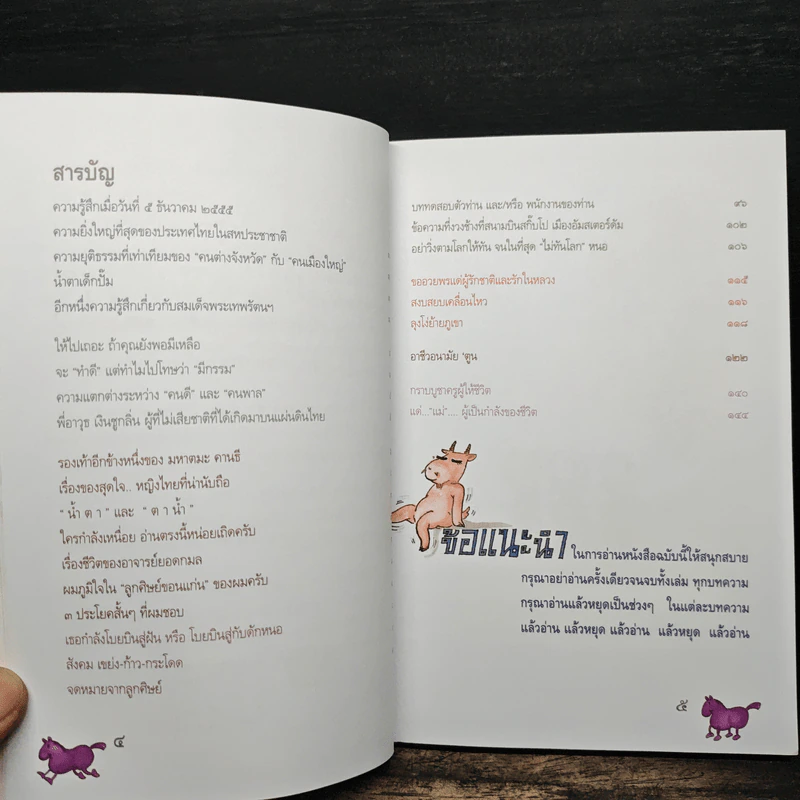 สารบัญ
ความรู้สึกเมื่อวันที่ ๕ ธันวาคม ๒๕๕๕
ความยิ่งใหญ่ที่สุดของประเทศไทยในสหประชาชาติ
ความยุติธรรมที่เท่าเทียมของ "คนต่างจังหวัด" กับ "คนเมืองใหญ่"
น้ำตาเด็กปั๊ม
อีกหนึ่งความรู้สึกเกี่ยวกับสมเด็จพระเทพรัตนฯ
ให้ไปเถอะ ถ้าคุณยังพอมีเหลือ
จะ "ทำดี" แต่ทำไมไปโทษว่า "มีกรรม"
ความแตกต่างระหว่าง "คนดี" และ "คนพาล"
พี่อาวุธ เงินชูกลิ่น ผู้ที่ไม่เสียชาติที่ได้เกิดมาบนแผ่นดินไทย
รองเท้าอีกข้างหนึ่งของ มหาตมะ คานธี
เรื่องของสุดใจ.. หญิงไทยที่น่านับถือ
"น้ำ ต า" และ "ต า น้ำ"
ใครกำลังเหนื่อย อ่านตรงนี้หน่อยเถิดครับ
เรื่องชีวิตของอาจารย์ยอดกมล
ผมภูมิใจใน "ลูกศิษย์ขอนแก่น" ของผมครับ
๓ ประโยคสั้นๆ ที่ผมชอบ
เธอกำลังโบยบินสู่ฝัน หรือ โบยบินสู่กับดักหนอ
สังคม เขย่ง-ก้าว-กระโดด
จดหมายจากลูกศิษย์
๔
บททดสอบตัวท่าน และ/หรือ พนักงานของท่าน ๙๖
ข้อความที่งวงช้างที่สนามบินสกิ๊บโป เมืองอัมสเตอร์ดัม ๑๐๒
อย่าวิ่งตามโลกให้ทัน จนในที่สุด "ไม่ทันโลก" หนอ ๑๐๖
ขออวยพรแด่ผู้รักชาติและรักในหลวง ๑๑๕
สงบสยบเคลื่อนไหว ๑๑๖
ลุงโง่ย้ายภูเขา ๑๑๘
อาชีวอนามัย 'ตูน ๑๒๒
กราบบูชาครูผู้ให้ชีวิต ๑๔๐
แด่..."แม่".... ผู้เป็นกำลังของชีวิต ๑๔๔
ข้อแนะนำ ในการอ่านหนังสือฉบับนี้ให้สนุกสบาย
กรุณาอย่าอ่านครั้งเดียวจนจบทั้งเล่ม ทุกบทความ
กรุณาอ่านแล้วหยุดเป็นช่วงๆ ในแต่ละบทความ
แล้วอ่าน แล้วหยุด แล้วอ่าน แล้วหยุด แล้วอ่าน
๕